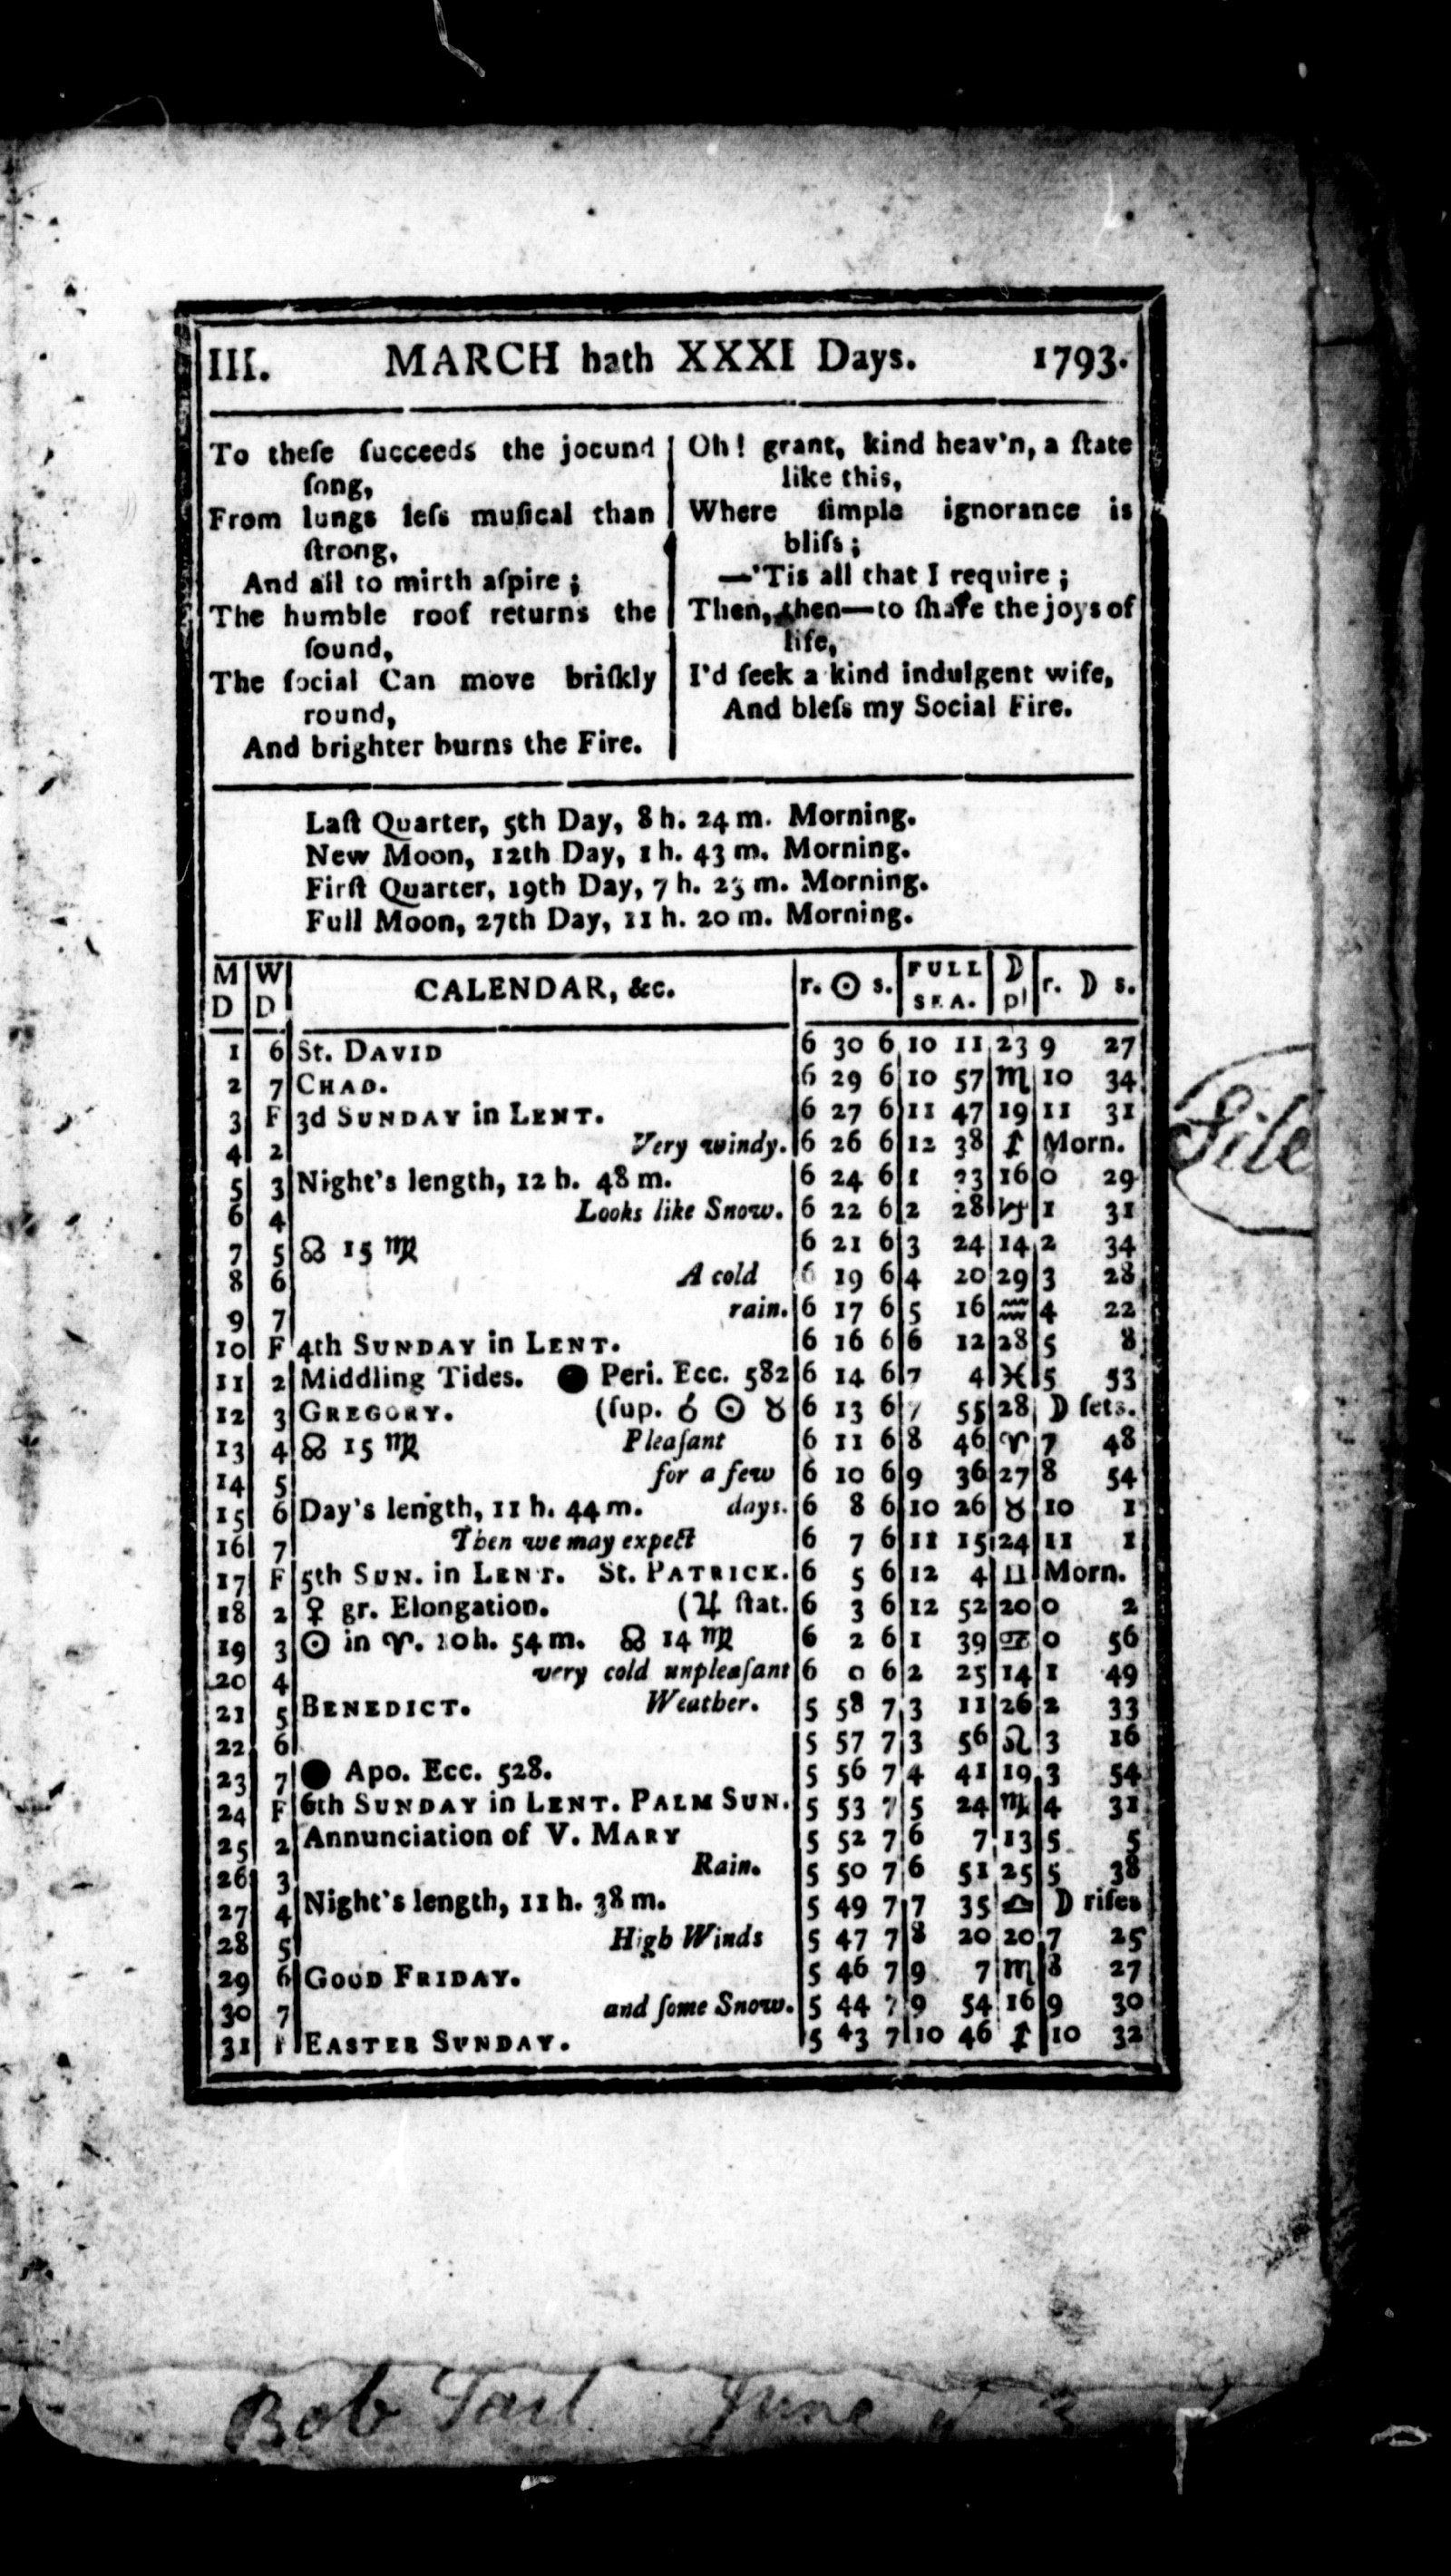 III. MARCH hath XXXI Days. 1793.
To theſe ſucceeds the jocund
ſong,
From lungs leſs muſical than
ſtrong,
And all to mirth aſpire;
The humble roof returns the
ſound,
The ſocial Can move briſkly
round,
And brighter burns the Fire.
Oh! grant, kind heav'n, a ſtate
like this,
Where ſimple ignorance is
bliſs;
—'Tis all that I require;
Then, then—to ſhare the joys of
life,
I'd ſeek a kind indulgent wife,
And bleſs my Social Fire.
Laſt Quarter, 5th Day, 8 h. 24 m. Morning.
New Moon, 12th Day, 1 h. 43 m. Morning.
Firſt Quarter, 19th Day, 7 h. 23 m. Morning.
Full Moon, 27th Day, 11 h. 20 m. Morning.
M D W D CALENDAR, &c. r. ☉ s. FULL SEA. ☽ pl r. ☽ s.
1 6 St. DAVID 6 30 6 10 11 23 9 27
2 7 CHAD. 6 29 6 10 57 ♏ 10 34
3 F 3d SUNDAY in LENT. 6 27 6 11 47 19 11 31
4 2 Very windy. 6 26 6 12 38 ♐ Morn.
5 3 Night's length, 12 h. 48 m. 6 24 6 1 33 16 0 29
6 4 Looks like Snow. 6 22 6 2 28 ♑ 1 31
7 5 ☊ 15 ♍ 6 21 6 3 24 14 2 34
8 6 A cold 6 19 6 4 20 29 3 28
9 7 rain. 6 17 6 5 16 ♒ 4 22
10 F 4th SUNDAY in LENT. 6 16 6 6 12 28 5 8
11 2 Middling Tides. ● Peri. Ecc. 582 6 14 6 7 4 ♓ 5 53
12 3 GREGORY. (ſup. ☌ ☉ ☿ 6 13 6 7 55 28 ☽ ſets.
13 4 ☊ 15 ♍ Pleaſant 6 11 6 8 46 ♈ 7 48
14 5 for a few 6 10 6 9 36 27 8 54
15 6 Day's length, 11 h. 44 m. days. 6 8 6 10 26 ♉ 10 1
16 7 Then we may expect 6 7 6 11 15 24 11 1
17 F 5th SUN. in LENT. St. PATRICK. 6 5 6 12 4 ♊ Morn.
18 2 ♀ gr. Elongation. (♃ ſtat. 6 3 6 12 52 20 0 2
19 3 ☉ in ♈. 10h. 54 m. ☊ 14 ♍ 6 2 6 1 39 ♋ 0 56
20 4 very cold unpleaſant 6 0 6 2 25 14 1 49
21 5 BENEDICT. Weather. 5 58 7 3 11 26 2 33
22 6 5 57 7 3 56 ♌ 3 16
23 7 ● Apo. Ecc. 528. 5 56 7 4 41 19 3 54
24 F 6th SUNDAY in LENT. PALM SUN. 5 53 7 5 24 ♍ 4 31
25 2 Annunciation of V. MARY 5 52 7 6 7 13 5 5
26 3 Rain. 5 50 7 6 51 25 5 38
27 4 Night's length, 11 h. 38 m. 5 49 7 7 35 ♎ ☽ riſes
28 5 High Winds 5 47 7 8 20 20 7 25
29 6 GOOD FRIDAY. 5 46 7 9 7 ♏ 8 27
30 7 and ſome Snow. 5 44 7 9 54 16 9 30
31 F EASTER SUNDAY. 5 43 7 10 46 ♐ 10 32
Bob Tail June